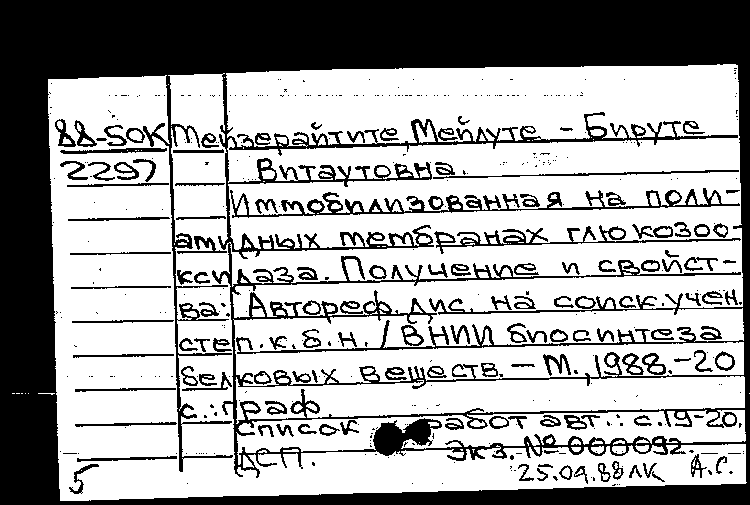 88-5OK Мейзерайтите, Мейлуте - Бируте
2297 Витаутовна.
Иммобилизованная на поли-
амидных мембранах глюкозоо-
ксидаза. Получение и свойст-
ва: Автореф. дис. на соиск. учен.
степ. к. б. н. / ВНИИ биосинтеза
белковых веществ. - М., 1988. - 20
с.: граф.
Список работ авт.: с. 19-20.
ДСП. Экз. № 000092.
5 25.04.88 ЛК А.С.